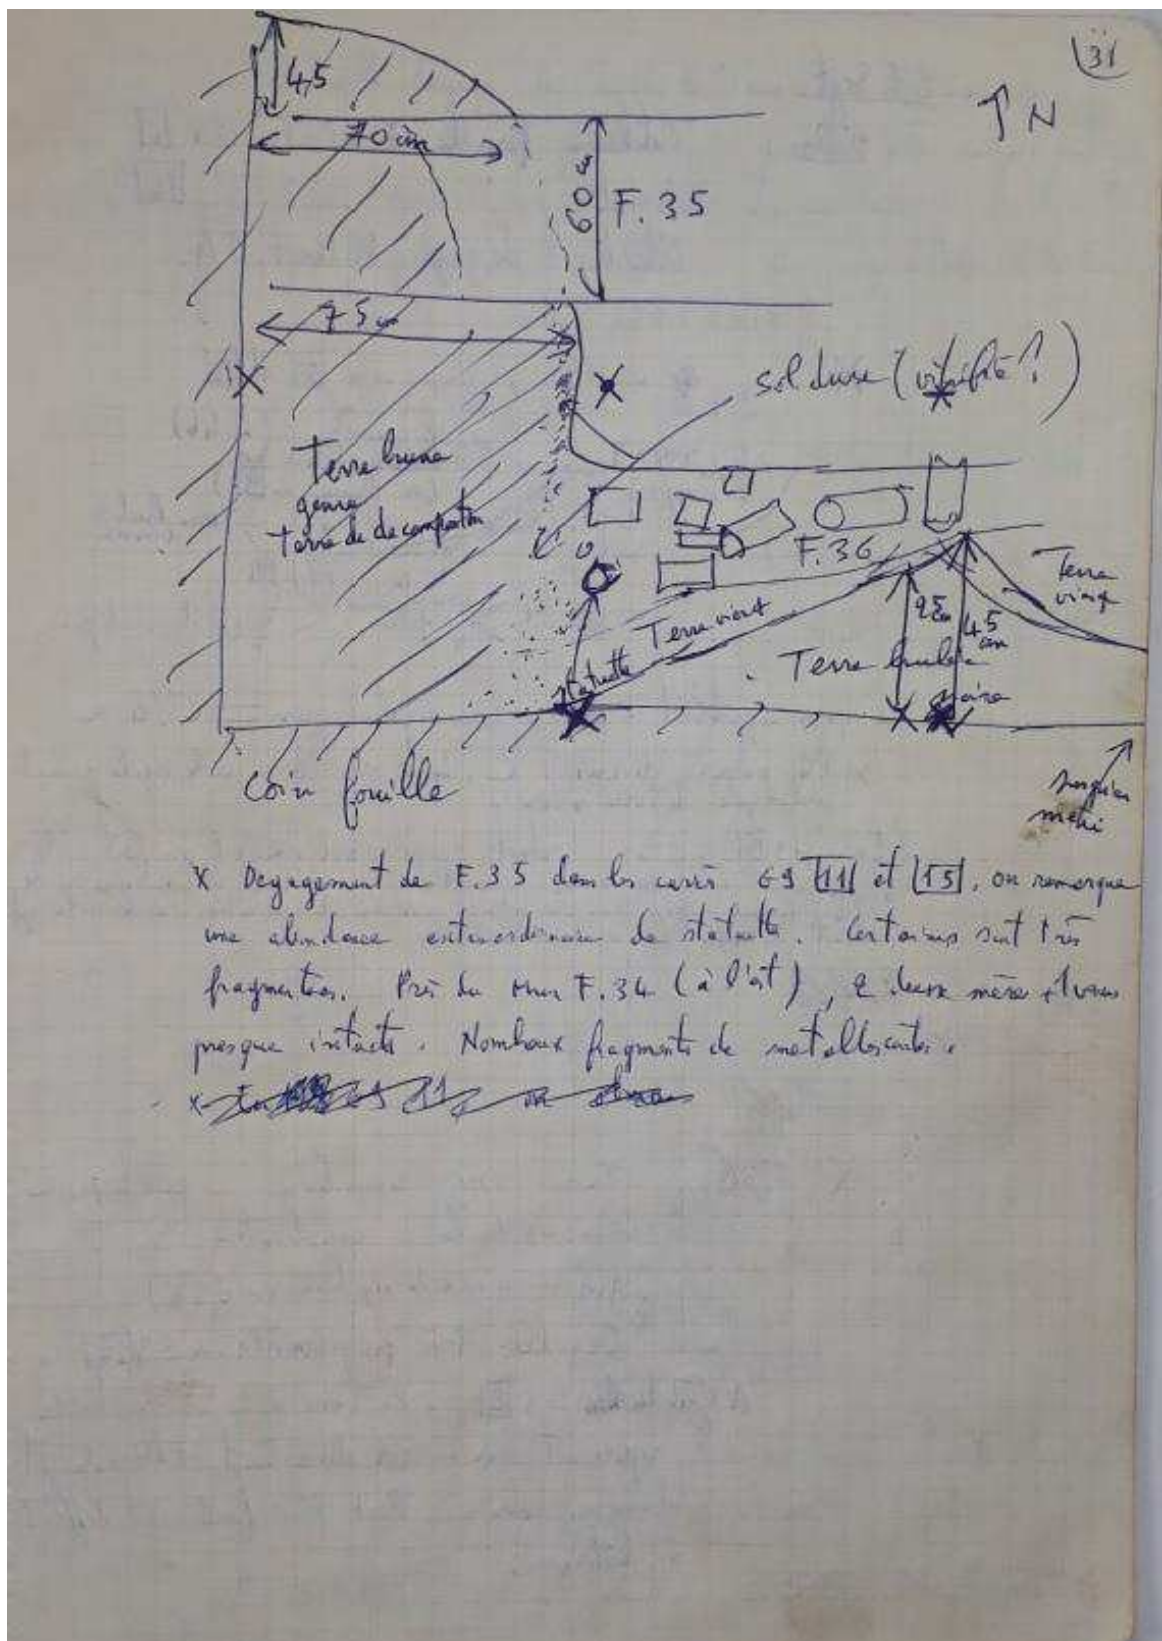 31
↑ N
45
70 cm
60 cm
F. 35
75 cm
sol dure (vitrifié ?)
Terre brune
genre
terre de decomposition
F. 36
Terre
vierge
Terre vierge
25 cm
45
cm
statuette
Terre brulée
noire
Coin fouille
jusqu'au
x Degagement de F.35 dans les carrés G9 11 et 15, on remarque
une abondance extraordinaire de statuette. Certaines sont très
fragmentées. Près du mur F.34 (à l'est), deux
presque intacts. Nombreux fragments de